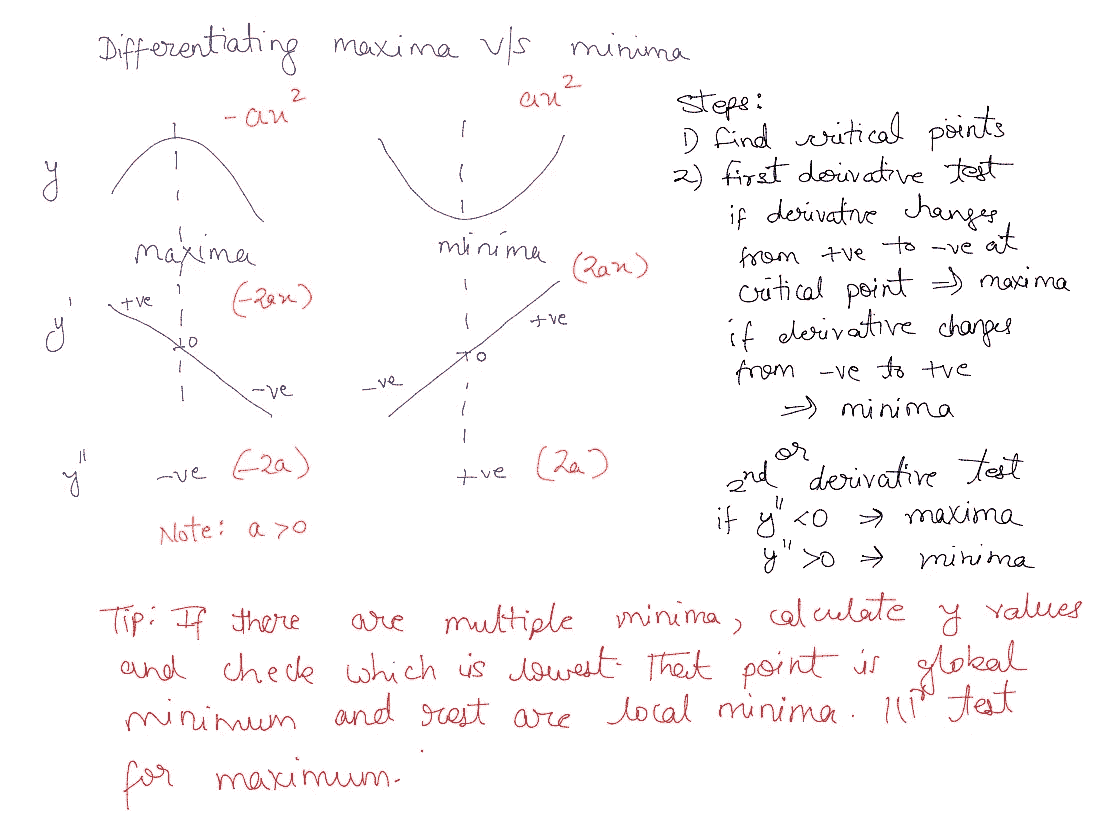 Differentiating maxima v/s minima
-ax²
ax²
y
maxima
minima
y'
+ve
(-2ax)
0
-ve
(2ax)
+ve
0
-ve
y"
-ve (-2a)
+ve (2a)
Note: a >0
Steps:
1) find critical points
2) first derivative test
if derivative changes
from +ve to -ve at
critical point => maxima
if derivative changes
from -ve to +ve
=> minima
or
2nd derivative test
if y" <0 => maxima
y" >0 => minima
Tip: If there are multiple minima, calculate y values
and check which is lowest. That point is global
minimum and rest are local minima. test
for maximum.